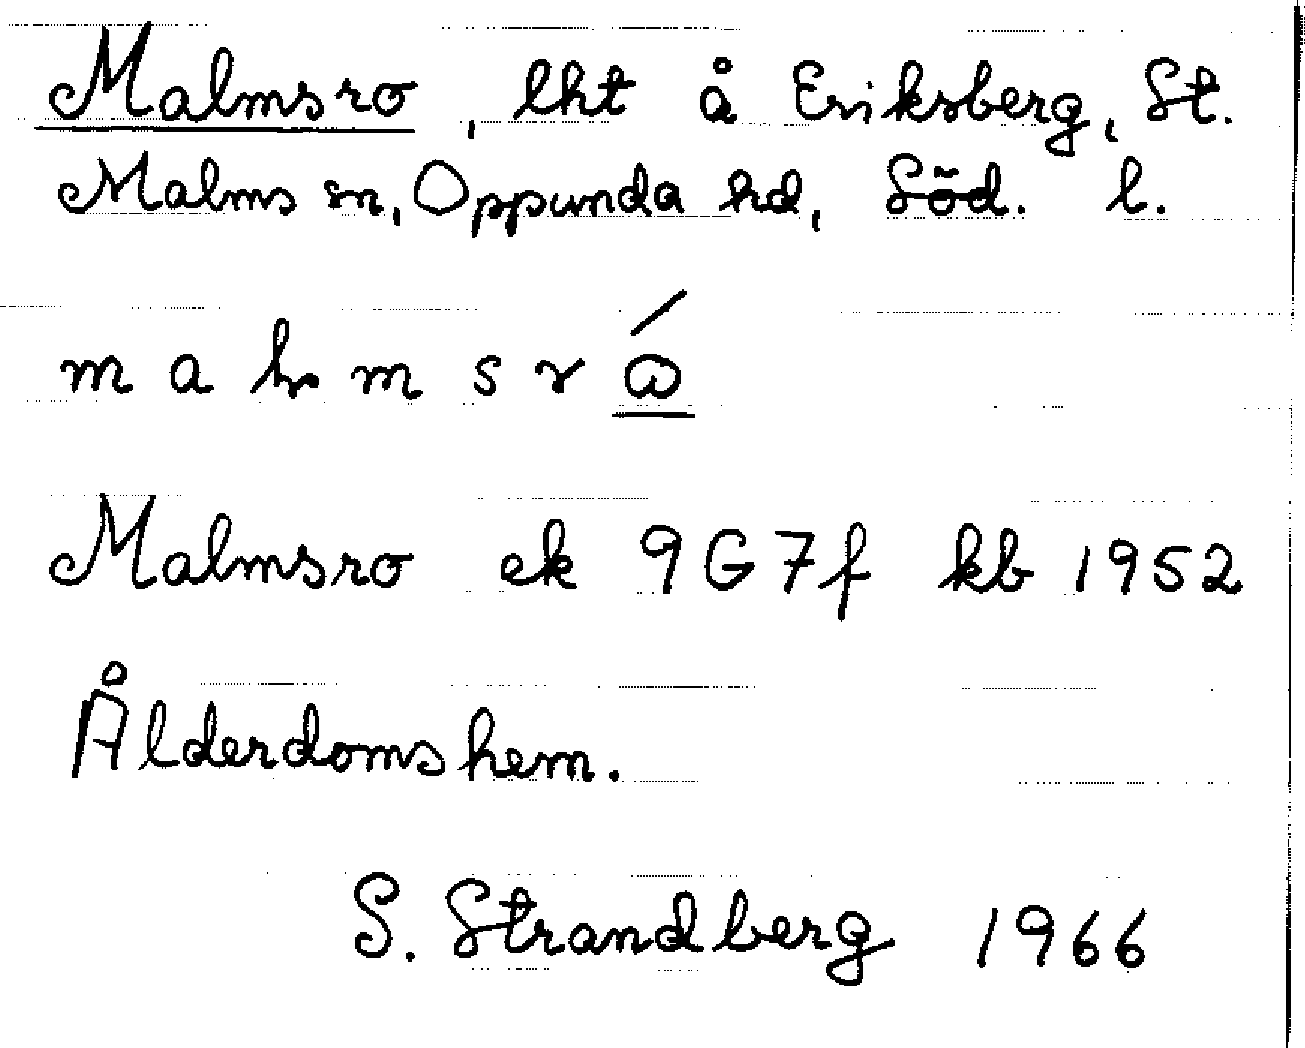 Malmsro, lht å Eriksberg, St.
Malms sn, Oppunda hd, Söd. l.
Malmsro ek 9G7f kb 1952
Ålderdomshem.
S. Strandberg 1966